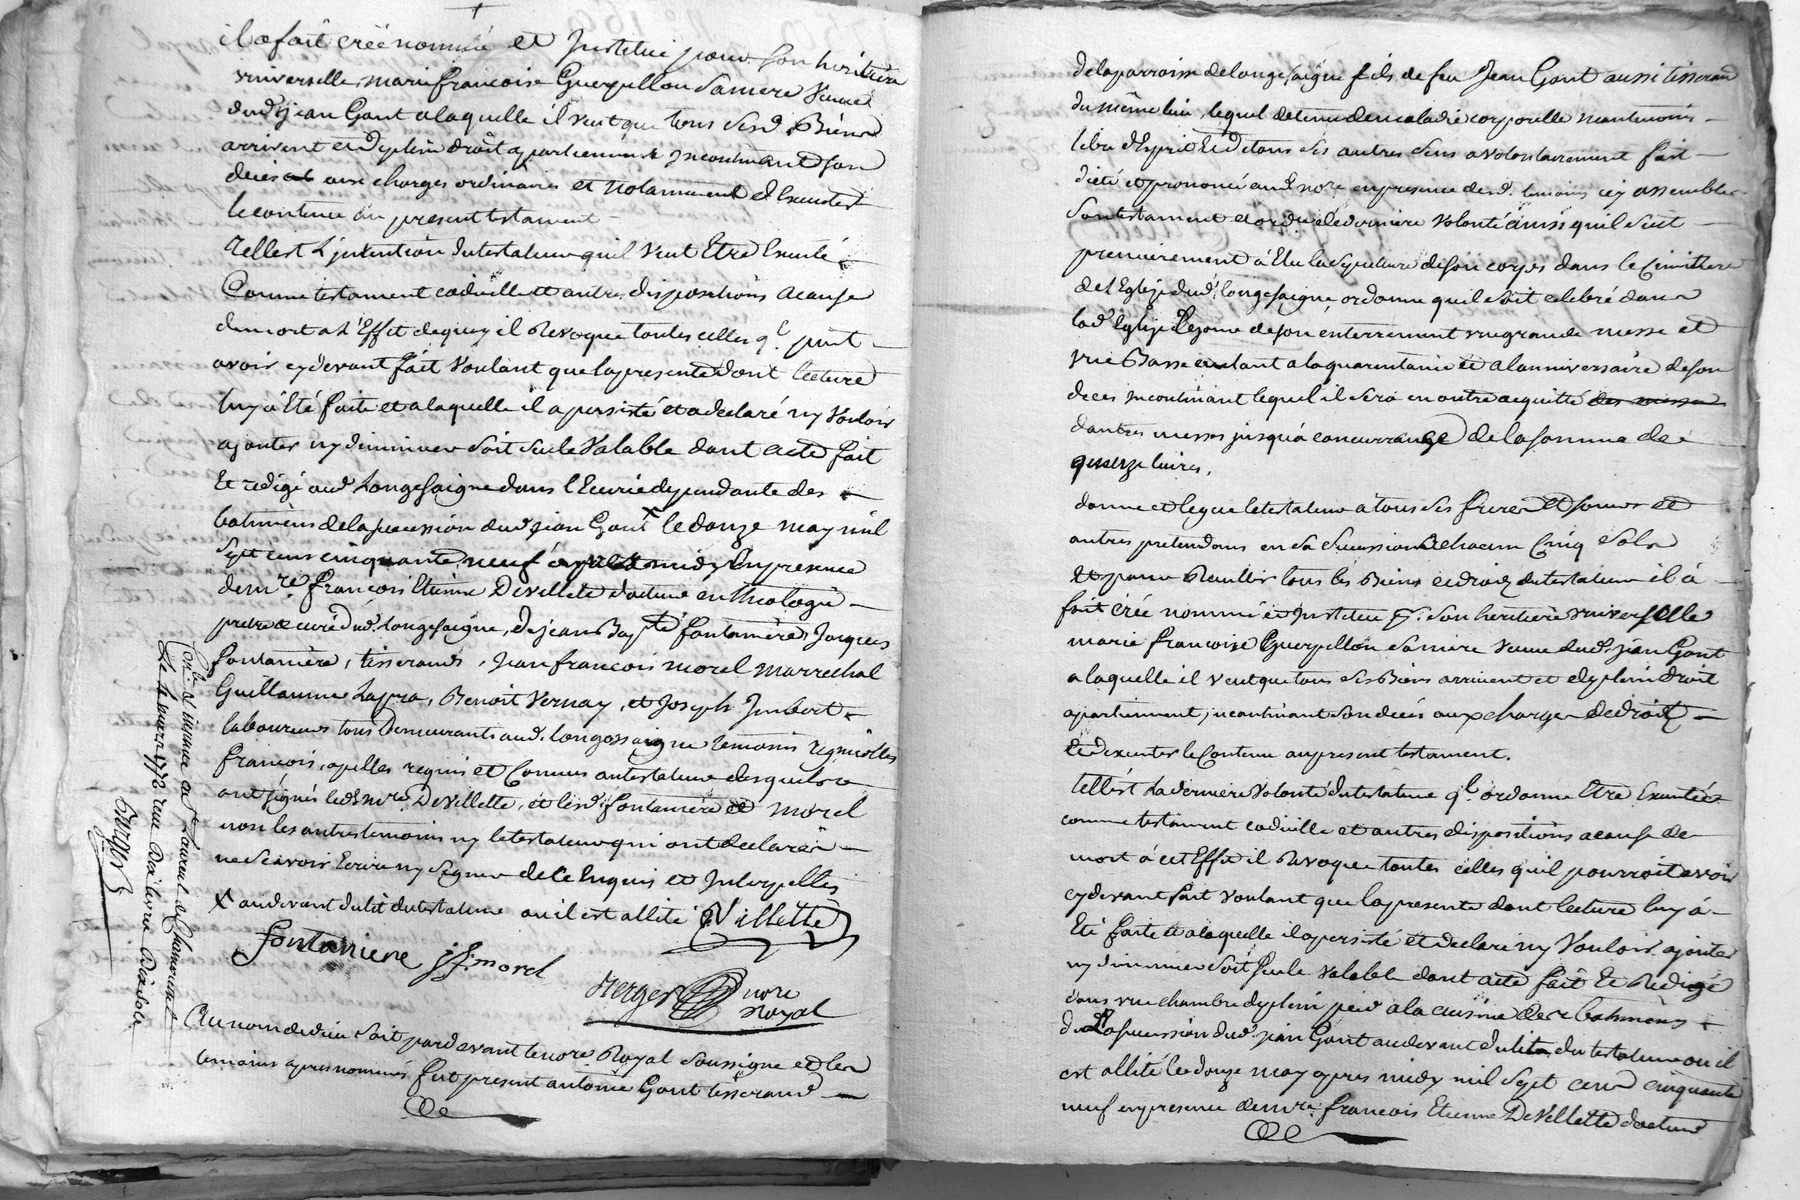 il a fait créé nommé et Justitué pour son heritiere
universelle, marie francoise Guerpillon sa mere Veuve
dud. jean Gont a laquelle il veut que tous sesd. Biens
arrivent et de plein droit apartiennent incontinant son
deces aux charges ordinaires et notamment d'Executer
le contenu au present testament
Telle est L'intention du testateur qu'il veut Etre Executé
Comme testament codicille et autres dispositions a cause
de mort a L'Effet de quoy il Revoque toutes celles q.l peut
avoir cy devant fait Voulant que la presente dont lecture
luy a Eté faite et a laquelle il a persisté et a declaré n'y Vouloir
ajouter ny diminuer soit seule Valable dont acte fait
Et redigé aud. Longesaigne dans l'Ecurie dependante des
batiments de la succession dud. jean Gont X le douze may mil
sept cens cinquante neuf apres midy En presence
de m.re françois Etienne DeVillette docteur en theologie
pretre et curé dud. longesaigne, de jean Bap.te fontaniere, Jacques
fontaniere, tisserands, jean francois morel marrechal
Guillaume Laffra, Benoit Vernay, et Joseph Jmbert
laboureurs tous Demeurants aud. longessaigne temoins regnicolles
francois, apelles requis et Connus au testateur desquels
ont signés led. m.re DeVillette, et lesd. fontaniere et morel
non les autres temoins ny le testateur qui ont declaré
ne sçavoir Ecrire ny signer de ce Enquis et Jnterpellés
X au devant du lit du testateur ou il est allité DVillette
fontaniere j f. morel
Merger nore
Royal
Con.lé et insinué a St Laurent de Chamousset
Le 4 mars 1772 reçu
Au nom de dieu soit pardevant le no.re Royal soussigné et les
temoins apres nommés fut present antoine Gont tisserand
de la parroisse de longesaigne fils de feu Jean Gont aussi tisserand
du même lieu, lequel detenu de maladie corporelle neantmoins
libre d'Esprit Et de tous ses autres sens a volontairement fait
dicté et prononcé aud. no.re en presence desd. temoins icy assemblés
son testament et ord.ce de derniere Volonté ainsi qu'il suit
premierement a Elu la sepulture de son corps dans le Cimittiere
de l'Eglize dud. longesaigne ordonne qu'il soit celebré dans
lad. Eglize le jour de son enterrement une grande messe et
une Basse autant a la quarantaine et a l'anniversaire de son
deces incontinant lequel il sera en outre acquitté des messes
d'autres messes jusqu'a concurrange de la somme de
quinze livres.
donne et legue le testateur a tous ses freres et soeurs et
autres pretendans en sa succession a chacun Cinq sols
Et pour Recuillir tous les Biens et droits du testateur il a
fait crée nommé et Justitué p.r son heritiere universelle
marie francoise Guerpillon sa mere Veuve dud. jean Gont
a laquelle il veut que tous ses Biens arrivent et de plein droit
apartiennent, incontinant son deces aux charges de droit
et d'executer le Contenu au present testament.
telle est La derniere Volonté du testateur q.l ordonne Etre Executée
comme testament codicille et autres dispositions a cause de
mort a cet Effet il Revoque toutes celles qu'il pourroit avoir
cy devant fait voulant que la presente dont lecture luy a
Eté faite et a laquelle il a persisté et declaré n'y Vouloir ajouter
ny diminuer soit seule Valable dont acte fait Et Redigé
dans une chambre de plein pied a la cuisine des batiments
de la succession dud. jean Gont au devant du lit du testateur ou il
est allité le douze may apres midy mil sept cens cinquante
neuf en presence de m.re francois Etienne DeVillette docteur